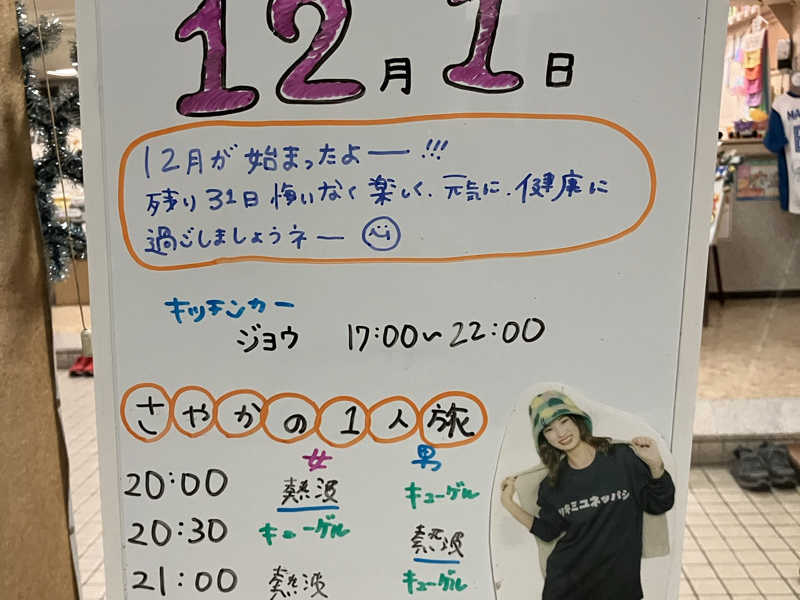 12月1日
12月が始まったよー!!!
残り31日悔いなく楽しく、元気に、健康に
過ごしましょうネー
キッチンカー
ジョウ 17:00〜22:00
さやかの1人旅
女 男
20:00 熱波 キューゲル
20:30 キューゲル 熱波
21:00 熱波 キューゲル